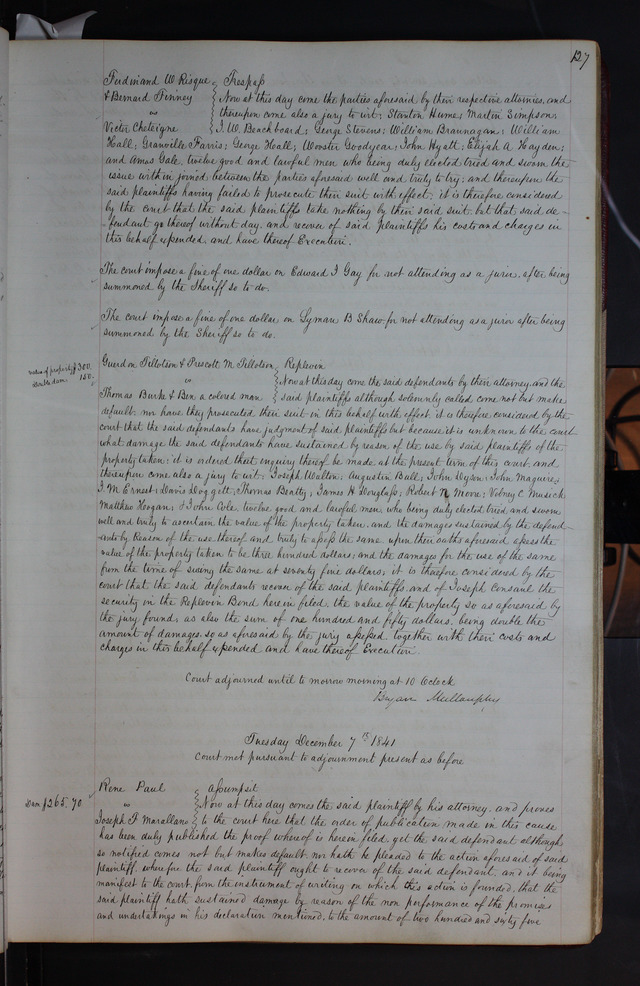 127
Ferdinand W Risque Trespass
& Bernard Finney Now at this day come the parties aforesaid by their respective attornies, and
vs thereupon come also a jury to wit: Stanton Hume; Martin Simpson;
Victor Cheteigne J. W. Beachboard; George Stevens; William Braunagan; William
Hall; Granville Farris; George Hall; Wooster Goodyear; John Hyatt; Elijah A Hayden;
and Amos Gale, twelve good and lawful men who being duly elected tried and sworn the
issue within joined between the parties aforesaid well and truly to try; and thereupon the
said plaintiffs having failed to prosecute their suit with effect; it is therefore considered
by the court that the said plaintiffs take nothing by their said suit. but that said de-
fendant go thereof without day, and recover of said plaintiffs his costs and charges in
this behalf expended, and have thereof Execution.
The court impose a fine of one dollar on Edward J Gay for not attending as a juror, after being
summoned by the Sheriff so to do.
The court impose a fine of one dollar on Lyman B Shaw for not attending as a juror after being
summoned by the Sheriff so to do.
Guerdon Tillotson & Prescott M. Tillotson Replevin
value of property $300. vs Now at this day come the said defendants by their attorney, and the
Double dam 150. Thomas Burke & Ben, a colored man said plaintiffs although solemnly called come not but make
default. nor have they prosecuted their suit in this behalf with effect, it is therefore considered by the
court that the said defendants have judgment of said plaintiffs but because it is unknown to the court
what damage the said defendants have sustained by reason of the use by said plaintiffs of the
property taken: it is ordered that enquiry thereof be made, at the present term of this court, and
thereupon come also a jury to wit: Joseph Walton; Augustin Ball; John Dyson; John Maguire;
J. M. Ernest; Davis Doggett; Thomas Beatty; James H Douglass; Robert N Moore; Vibney C Musick
Matthew Hogan; & John Cole, twelve good and lawful men, who being duly elected tried, and sworn
well and truly to ascertain the value of the property taken, and the damages sustained by the defend-
ants by Reason of the use thereof, and truly to assess the same, upon their oaths aforesaid, assess the
value of the property taken to be three hundred dollars, and the damages for the use of the same
from the time of suing the same at seventy five dollars; it is therefore considered by the
court that the said defendants recover of the said plaintiffs, and of Joseph Consaul the
security in the Replevin Bond herein filed, the value of the property so as aforesaid by
the jury found; as also the sum of one hundred and fifty dollars, being double the
amount of damages, so as aforesaid by the jury assessed, together with their costs and
charges in this behalf expended and have thereof Execution.
Court adjourned until to morrow morning at 10 Oclock
Bryan Mullanphy
Tuesday December 7th 1841
Court met pursuant to adjournment present as before
Rene Paul Assumpsit
Dam $265.70. vs Now at this day comes the said plaintiff by his attorney, and proves
Joseph F Marallano to the court here that the order of publication made in this cause
has been duly published the proof whereof is herein filed, yet the said defendant although
so notified comes not but makes default, nor hath he pleaded to the action aforesaid of said
plaintiff, wherefore the said plaintiff ought to recover of the said defendant, and it being
manifest to the court, from the instrument of writing on which this action is founded, that the
said plaintiff hath sustained damage by reason of the non performance of the promises
and undertakings in his declaration mentioned, to the amount of two hundred and sixty five